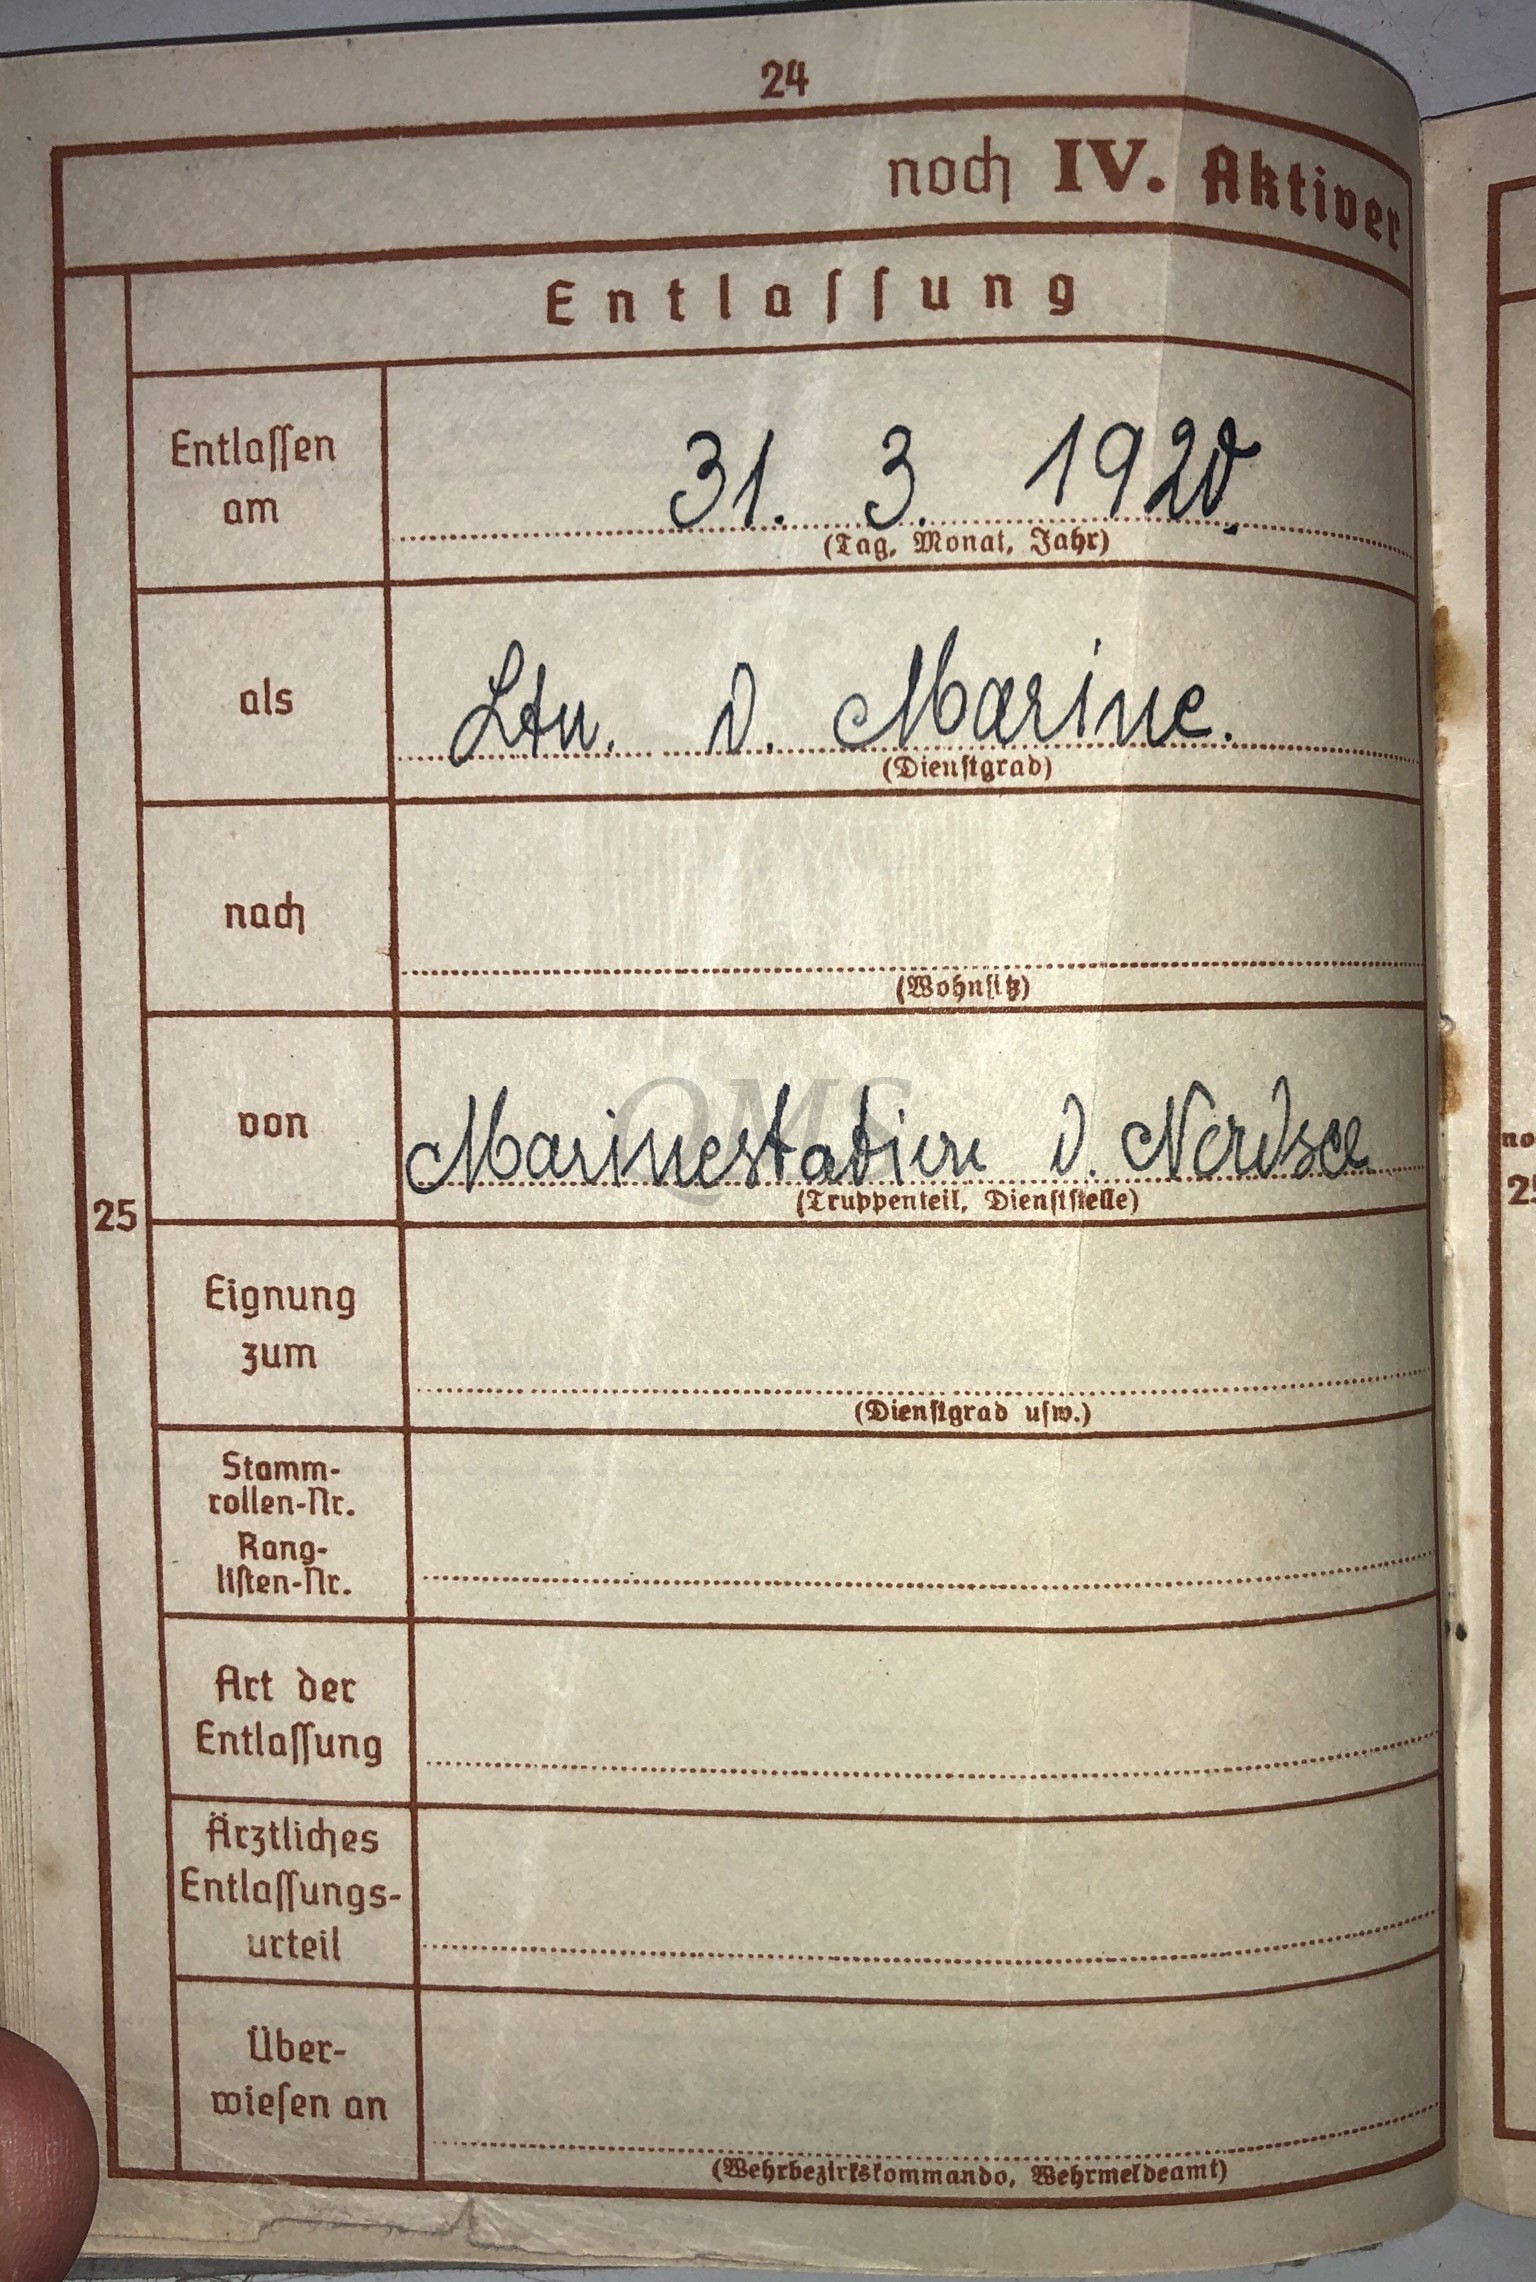 24
noch IV. Aktiver
Entlassung
Entlassen
am
31. 3. 1920.
(Tag, Monat, Jahr)
als
Ltn. d. Marine.
(Dienstgrad)
nach
(Wohnsitz)
von
Marinestation d. Nordsee
(Truppenteil, Dienststelle)
QMS
25
Eignung
zum
(Dienstgrad usw.)
Stamm-
rollen-Nr.
Rang-
listen-Nr.
Art der
Entlassung
Ärztliches
Entlassungs-
urteil
Über-
wiesen an
(Wehrbezirkskommando, Wehrmeldeamt)
no